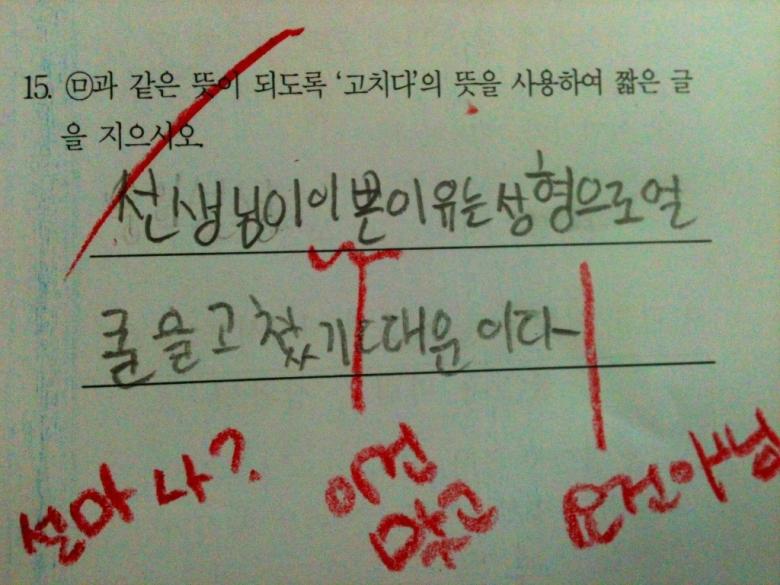 15. ㉤과 같은 뜻이 되도록 '고치다'의 뜻을 사용하여 짧은 글
을 지으시오.
선생님이이쁜이유는성형으로얼
굴을고쳤기때문이다
설마 나?
이건
맞고
요건아님